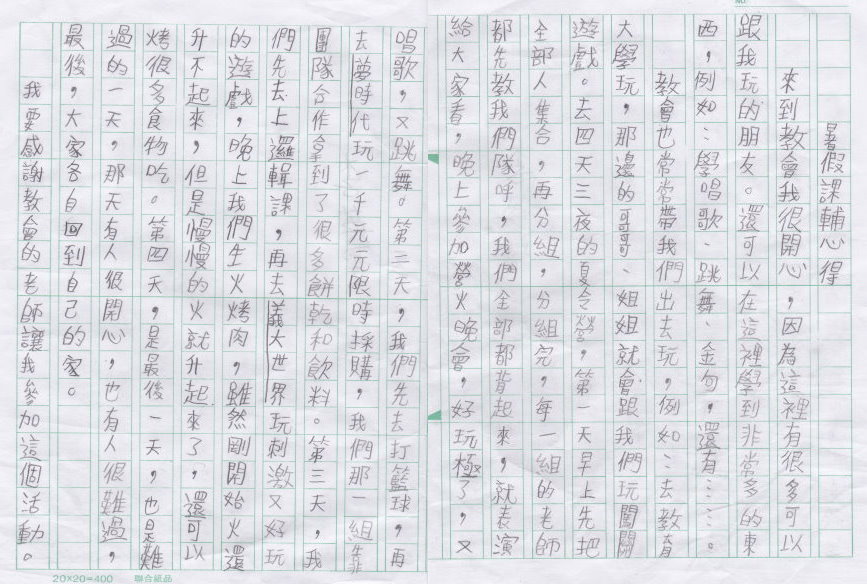 NO.
暑假課輔心得
來到教會我很開心，因為這裡有很多可以
跟我玩的朋友。還可以在這裡學到非常多的東
西，例如：學唱歌、跳舞、金句，還有……。
教會也常常帶我們出去玩，例如：去教育
大學玩，那邊的哥哥、姐姐就會跟我們玩闖關
遊戲。去四天三夜的夏令營，第一天早上先把
全部人集合，再分組，分組完，每一組的老師
都先教我們隊呼，我們全部都背起來，就表演
給大家看，晚上參加營火晚會，好玩極了，又
唱歌，又跳舞。第三天，我們先去打籃球，再
去夢時代玩一千元元限時採購，我們那一組靠
團隊合作拿到了很多餅乾和飲料。第三天，我
們先去上邏輯課，再去義大世界玩刺激又好玩
的遊戲，晚上我們生火烤肉，雖然剛開始火還
升不起來，但是慢慢的火就升起來了，還可以
烤很多食物吃。第四天，是最後一天，也是難
過的一天，那天有人很開心，也有人很難過，
最後，大家各自回到自己的家。
我要感謝教會的老師讓我參加這個活動。
20×20=400 聯合紙品